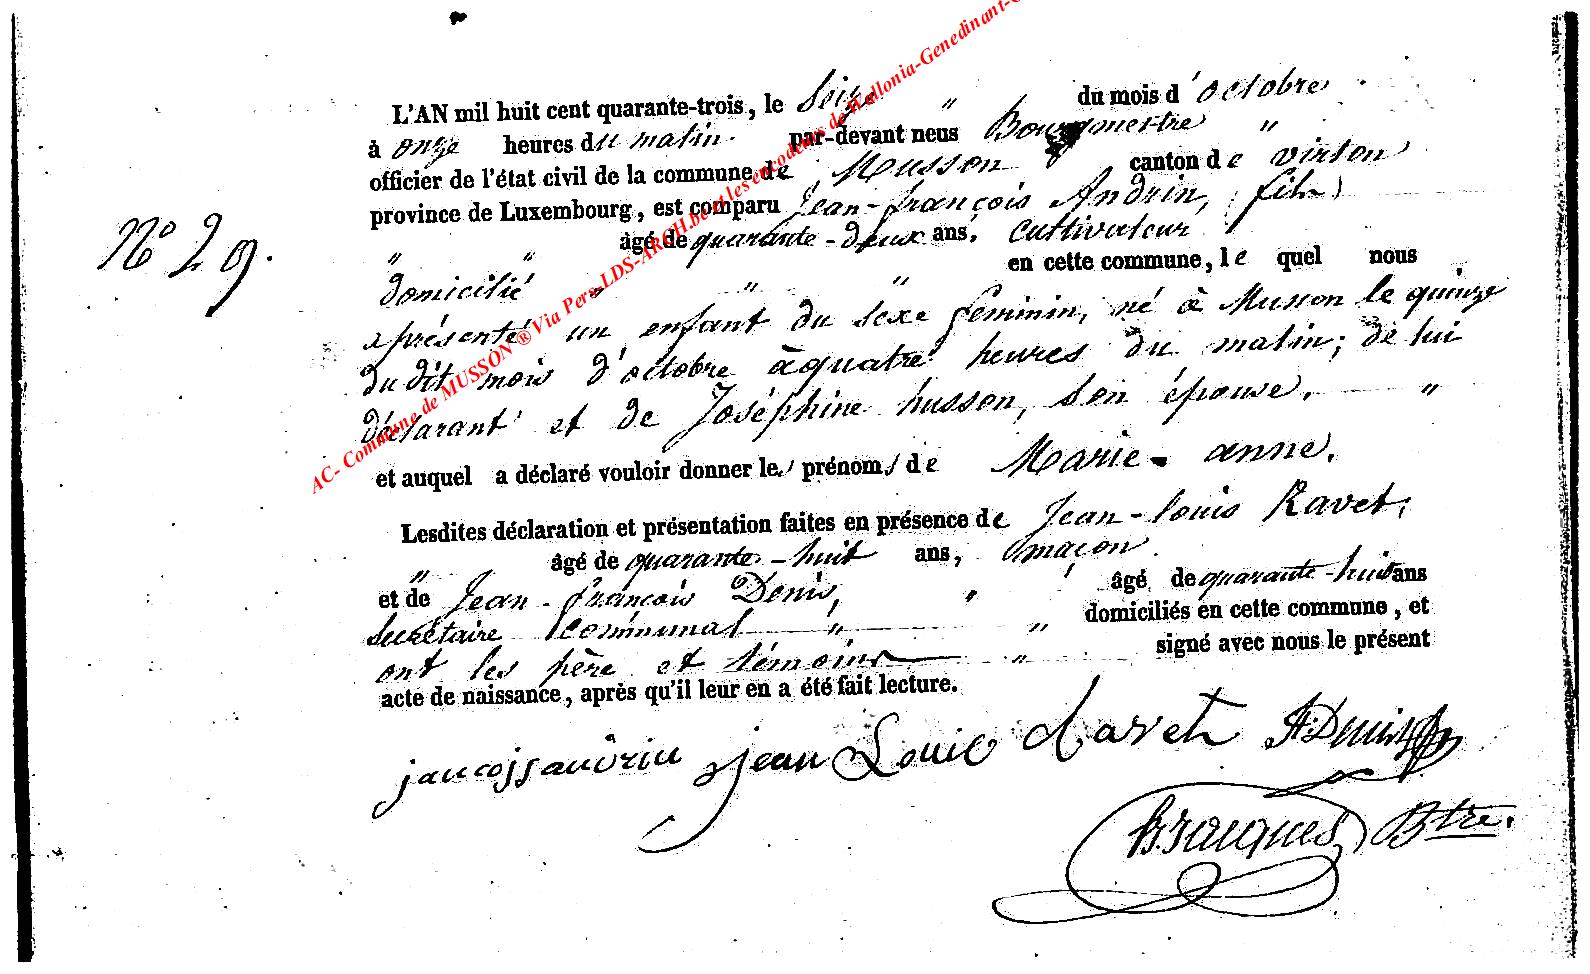 L'AN mil huit cent quarante-trois, le Seize " du mois d'octobre
à onze heures du matin. par-devant nous Bourgmestre "
officier de l'état civil de la commune de Musson canton de virton
province de Luxembourg, est comparu Jean-françois Andrin, fils
N° 29.
" " âgé de quarante-deux ans, Cultivateur
domicilié " " " en cette commune, le quel nous
a présenté un enfant du sexe féminin, né à Musson le quinze
du dit mois d'octobre à quatre heures du matin; de lui
déclarant et de Joséphine husson, son épouse. "
et auquel a déclaré vouloir donner les prénoms de Marie-anne.
Lesdites déclaration et présentation faites en présence de Jean-louis Ravet,
" âgé de quarante-huit ans, maçon.
et de Jean-françois Denis, " âgé de quarante-huit ans
secrétaire communal " " domiciliés en cette commune, et
ont les père et témoins " signé avec nous le présent
acte de naissance, après qu'il leur en a été fait lecture.
jancossandrin jean Louis Ravet Denis
Btre.
AC- Commune de MUSSON ® Via Pers-LDS-ARCH.be et les encodeurs de Wallonia-Genedinant-